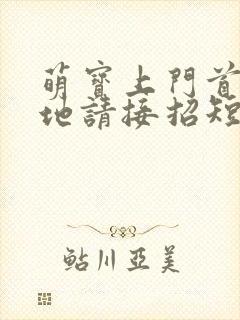 萌寶上門首
地請接招短
鮎川亞美